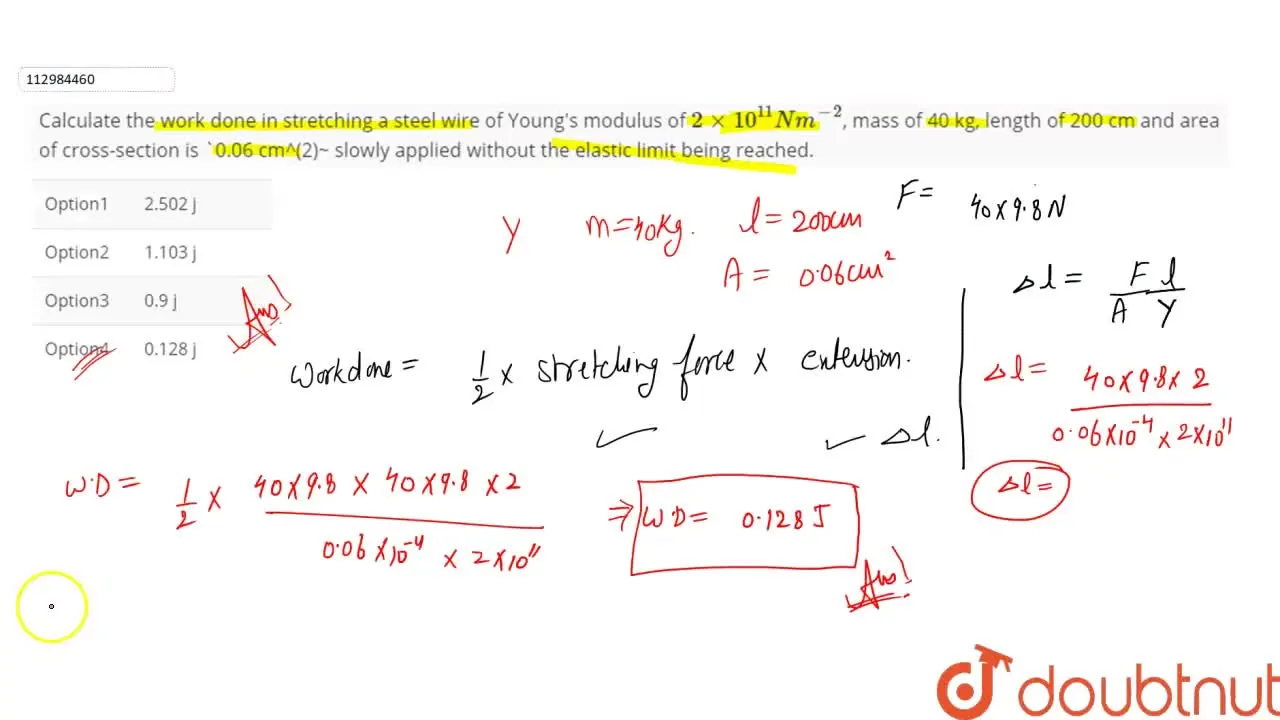 112984460
Calculate the work done in stretching a steel wire of Young's modulus of 2 × 10¹¹ Nm⁻², mass of 40 kg, length of 200 cm and area
of cross-section is `0.06 cm^(2)~ slowly applied without the elastic limit being reached.
Option1 2.502 j
Option2 1.103 j
Option3 0.9 j
Option4 0.128 j
Ans!
Y m=40kg. l= 200cm
A = 0.06cm²
F= 40×9.8N
Δl= Fl/AY
Workdone = 1/2 × stretching force × extension.
Δl.
Δl= 40×9.8×2/0.06×10⁻⁴×2×10¹¹
Δl=
W.D = 1/2 × 40×9.8 × 40×9.8 ×2/0.06×10⁻⁴ × 2×10¹¹
⇒ W.D= 0.128J
Ans!
doubtnut